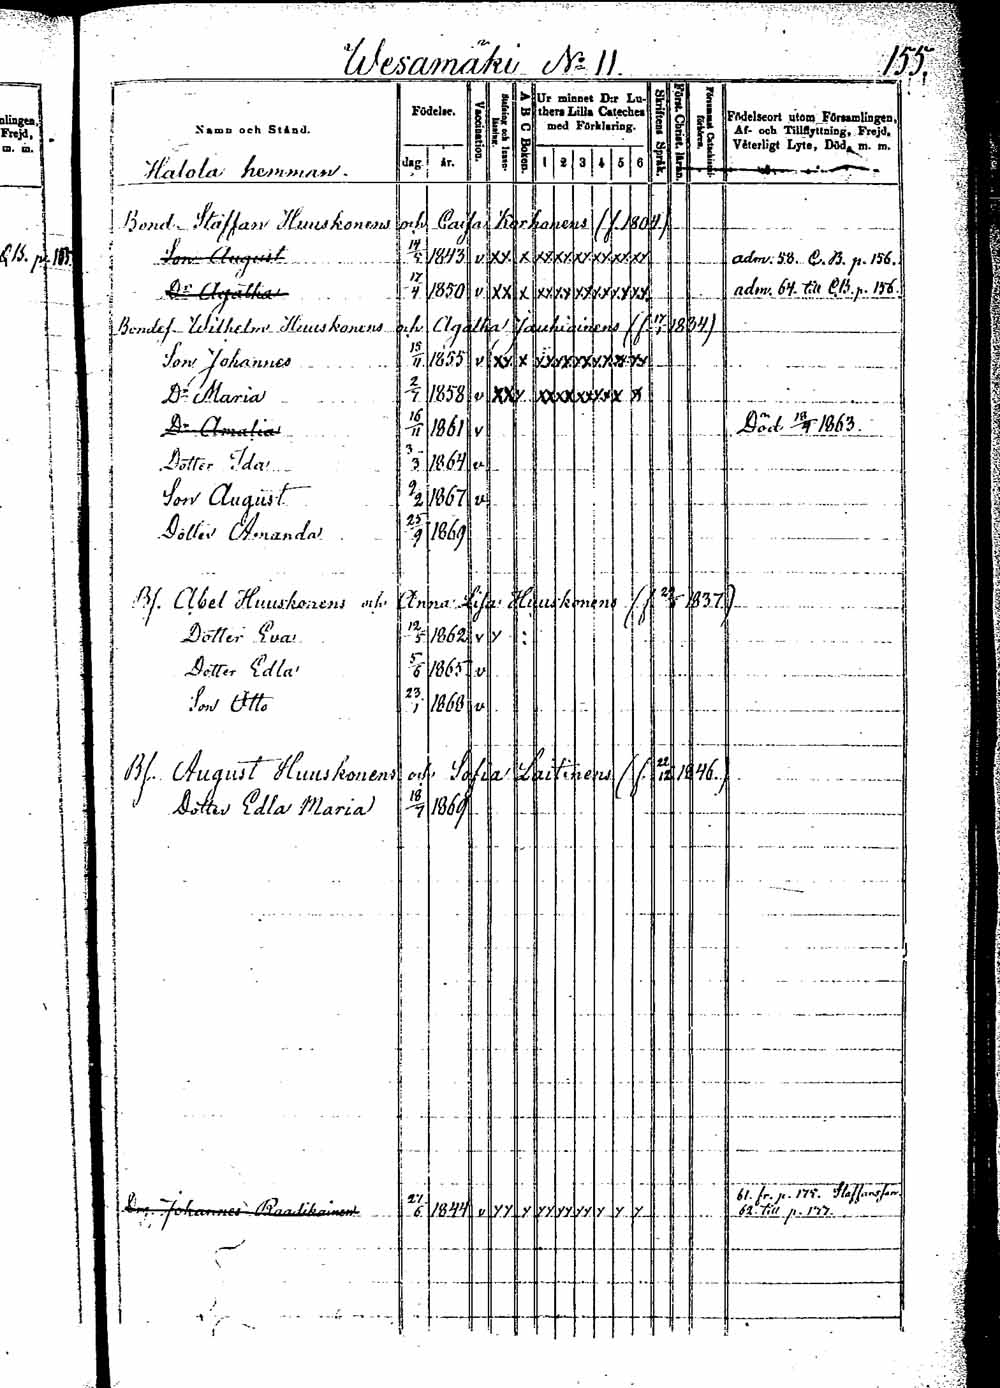 Wesamäki No 11.
155.
Namn och Stånd.
Födelse.
dag. år.
Vaccination.
A B C Boken.
Ur minnet D:r Lu-
thers Lilla Cateches
med Förklaring.
1 2 3 4 5 6
Skriftens Språk.
Födelseort utom Församlingen,
Af- och Tillflyttning, Frejd,
Veterligt Lyte, Död, m. m.
mlingen,
Frejd,
m. m.
Halola hemman.
Bond. Staffan Huuskonens och Caisa Korhonens (f. 1804.)
Son August 14/5 1843 v xx x xx xx xx xx xx xx adm. 58. C. B. p. 156.
Dr Agatha 17/4 1850 v xx x xx xx xx xx xx xx adm. 64. till C.B. p. 156.
Bondes. Wilhelm Huuskonens och Agatha Jauhiainens (f. 17/1 1834)
Son Johannes 15/11 1855 v xx x xx xx xx xx xx xx
Dr Maria 2/7 1858 v
Dr Amalia 16/11 1861 v Död 18/9 1863.
Dotter Ida 3/3 1864 v
Son August 9/2 1867 v
Dotter Amanda 25/9 1869
Bs. Abel Huuskonens och Anna Lisa Huuskonens 1837)
Dotter Eva 12/5 1862 v y
Dotter Edla 5/6 1865 v
Son Otto 23/1 1868 v
Bs. August Huuskonens och Sofia Laitinens (f. 22/12 1846.)
Dotter Edla Maria 18/7 1869
61. fr. p. 175. Staffansson.
Drg Johannes Raatikainen 27/6 1844 v yy y yy yy yy y y y 62. till p. 177.